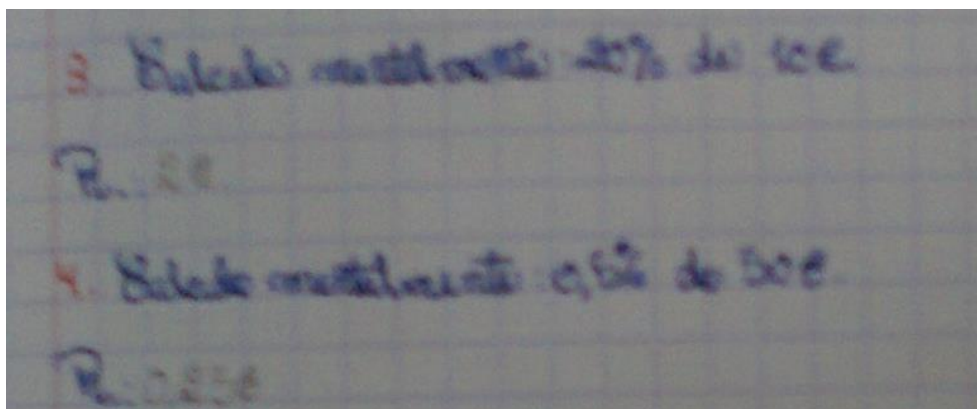 3. Calcula mentalmente 20% de 10€
R. 2€
4. Calcula mentalmente 0,5% de 50€
R. 0.25€